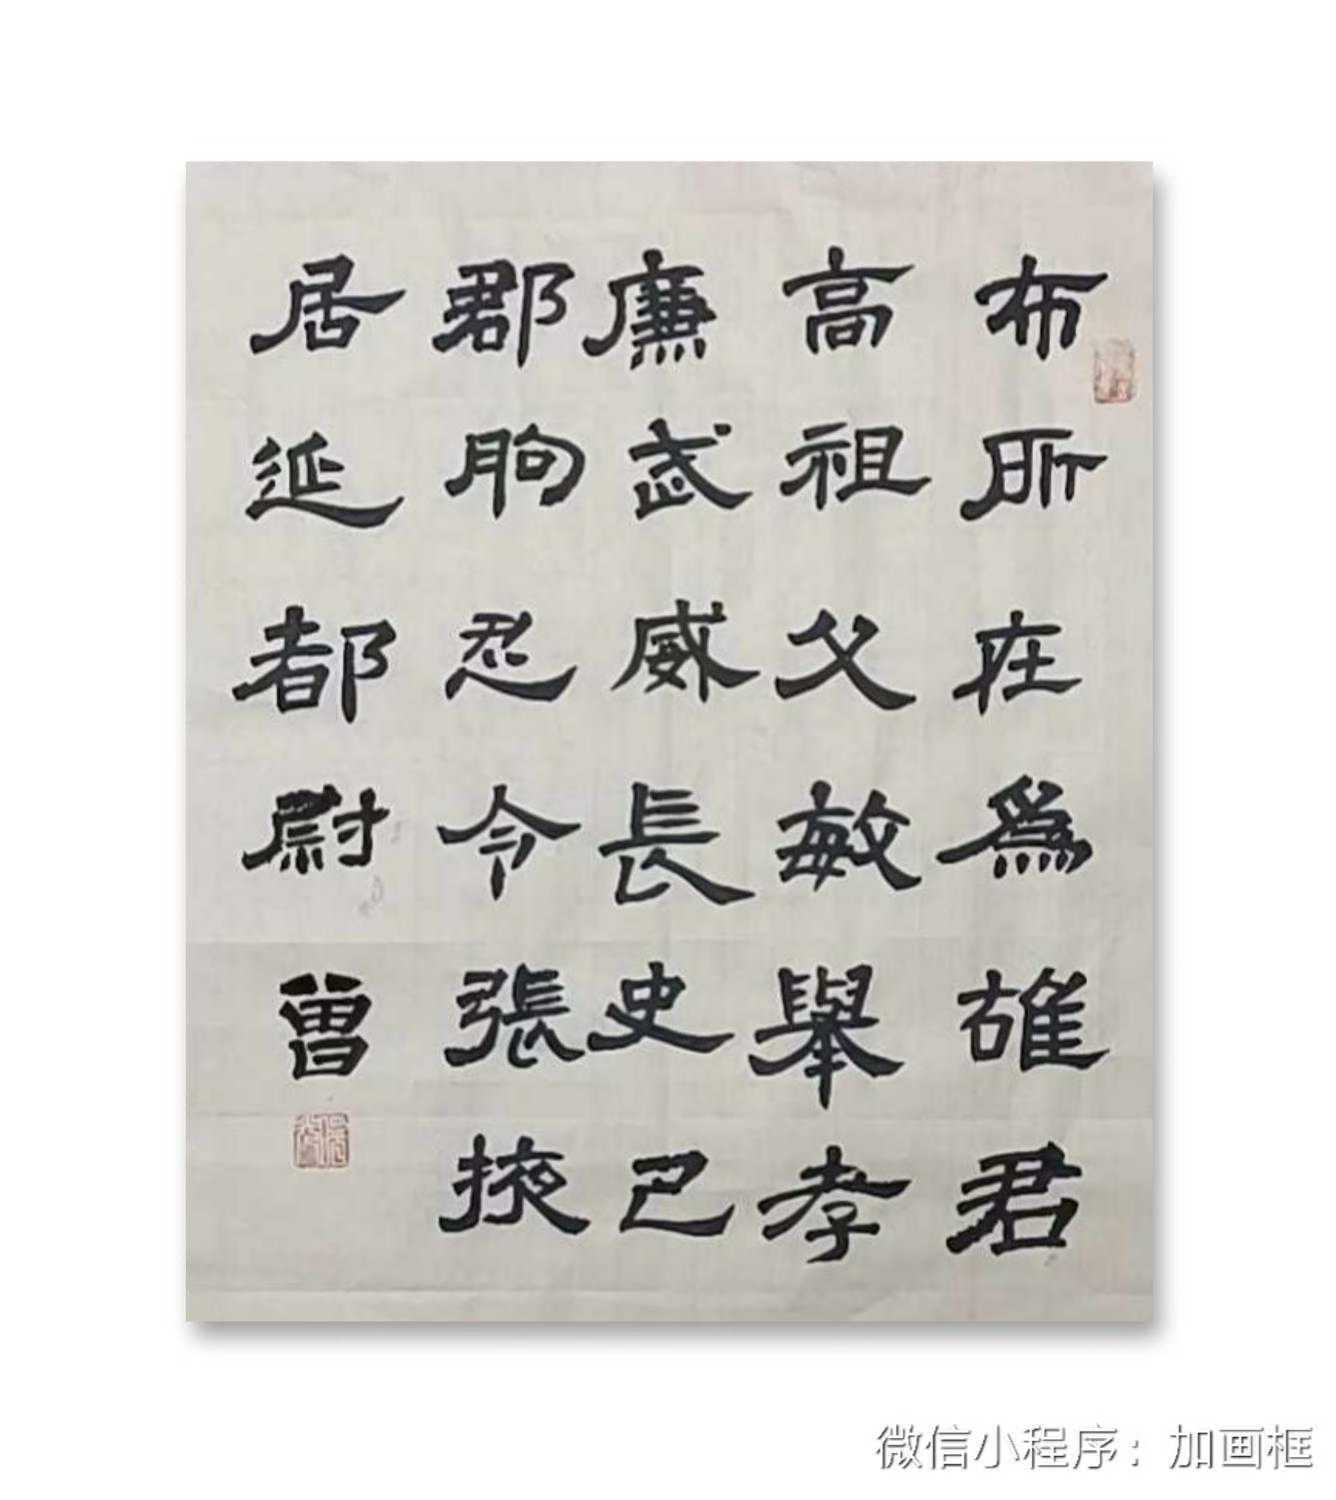 布所在為雄君
高祖父敏舉孝
廉武威長史巴
郡朐忍令張掖
居延都尉曾
微信小程序：加画框